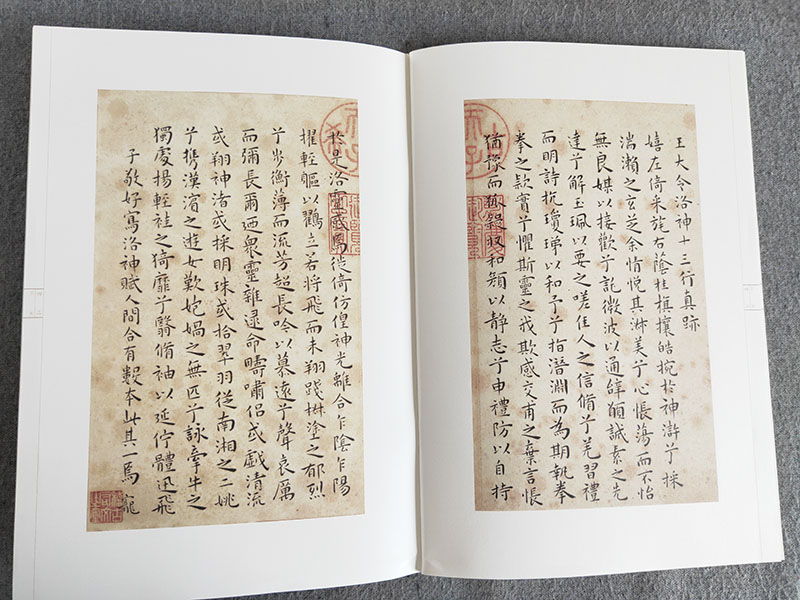 王大令洛神十三行真跡
嬉左倚采旄右蔭桂旗攘皓捥於神滸兮採
湍瀨之玄芝余情悅其淑美兮心悵蕩而不怡
無良媒以接歡兮託微波以通辭願誠素之先
達兮解玉珮以要之嗟佳人之信脩兮羌習禮
而明詩抗瓊珶以和予兮指潛淵而為期執拳
拳之欵實兮懼斯靈之我欺感交甫之棄言悵
猶豫而狐疑収和顏以靜志兮申禮防以自持
於是洛靈感焉徙倚仿偟神光離合乍陰乍陽
擢輕軀以鸖立若將飛而未翔踐椒塗之郁烈
兮步衡薄而流芳超長吟以慕遠兮聲哀厲
而彌長爾迺衆靈雜遝命疇嘯侶或戲清流
或翔神渚或採明珠或拾翠羽從南湘之二姚
兮攜漢濱之遊女歎炮媧之無匹兮詠牽牛之
獨處揚輕袿之猗靡兮翳脩袖以延佇體迅飛
子敬好寫洛神賦人間合有數本此其一焉 寵